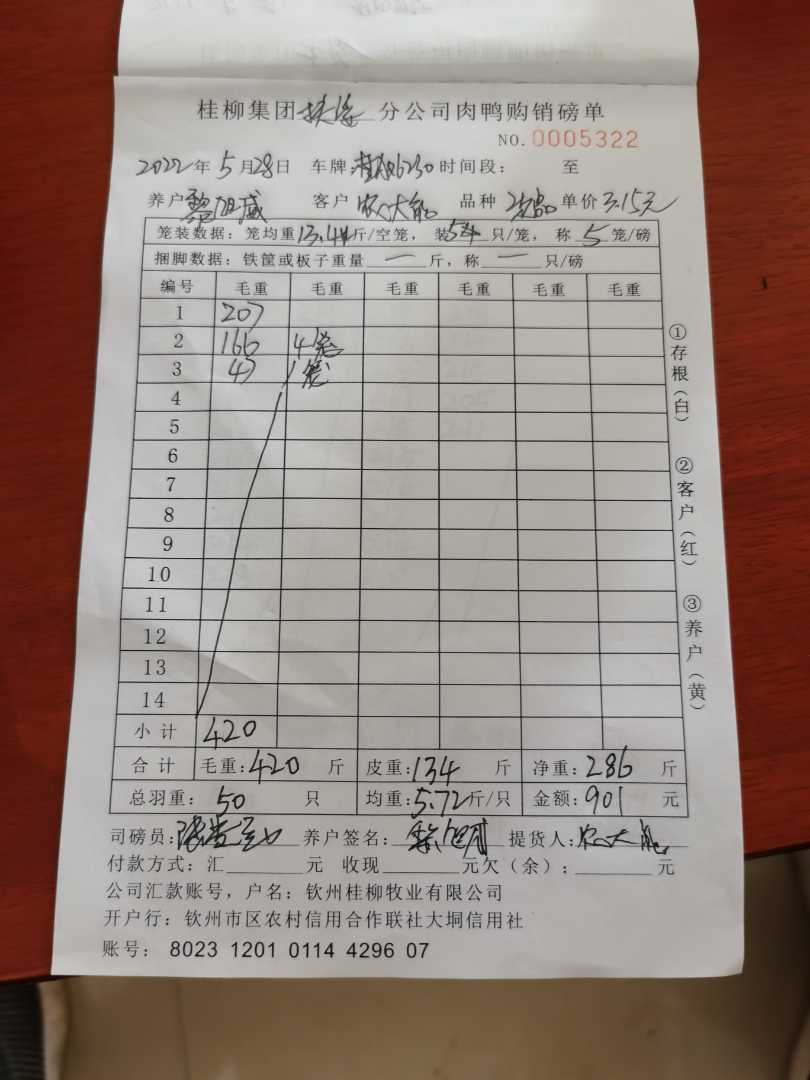 桂柳集团 分公司肉鸭购销磅单
NO.0005322
2022年5月28日 车牌: 时间段: 至
养户 黎旭威 客户 农大能 品种 单价3.15元
笼装数据: 笼均重13.4斤/空笼, 装5只/笼, 称5笼/磅
捆脚数据: 铁筐或板子重量一斤, 称一只/磅
编号 毛重 毛重 毛重 毛重 毛重 毛重
1 207
2 166 4笼
3 47 1笼
4
5
6
7
8
9
10
11
12
13
14
小计 420
合计 毛重:420斤 皮重:134斤 净重:286斤
总羽重: 50只 均重:5.72斤/只 金额:901元
司磅员: 养户签名: 黎旭威 提货人:农大能
付款方式: 汇 元 收现 元欠(余): 元
公司汇款账号, 户名: 钦州桂柳牧业有限公司
开户行: 钦州市区农村信用合作联社大垌信用社
账号: 8023 1201 0114 4296 07
①存根(白) ②客户(红) ③养户(黄)